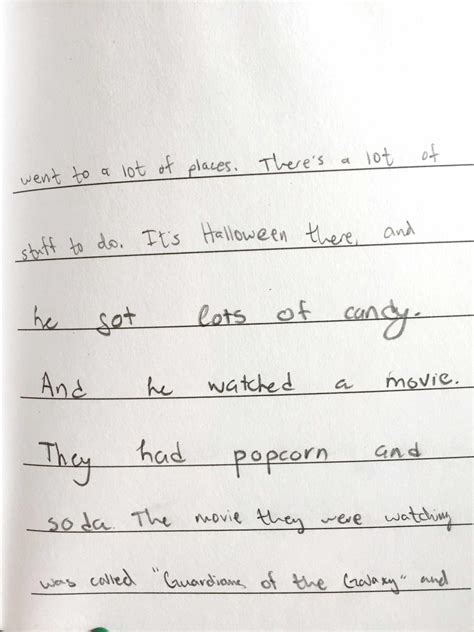 went to a lot of places. There's a lot of
stuff to do. It's Halloween there, and
he got lots of candy.
And he watched a movie.
They had popcorn and
soda. The movie they were watching
was called "Guardians of the Galaxy" and